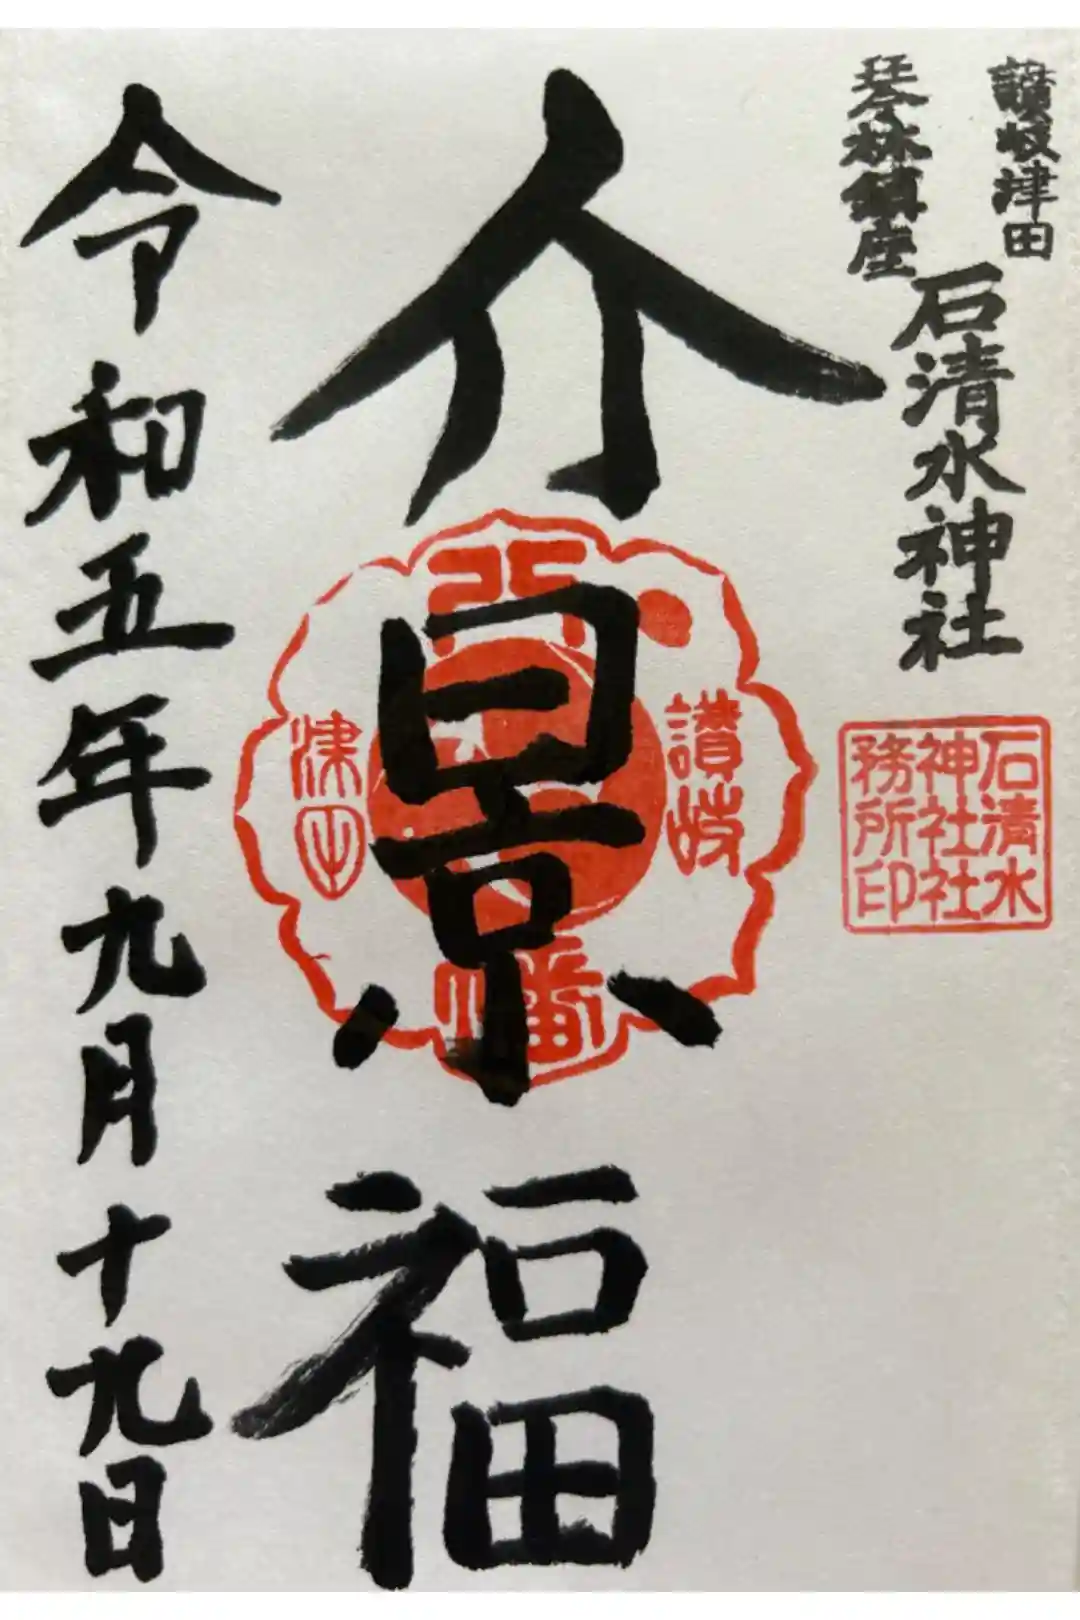 讃岐津田
琴林鎮座
石清水神社
石清水
神社社
務所印
介景福
讃岐
津田
八幡
令和五年九月十九日